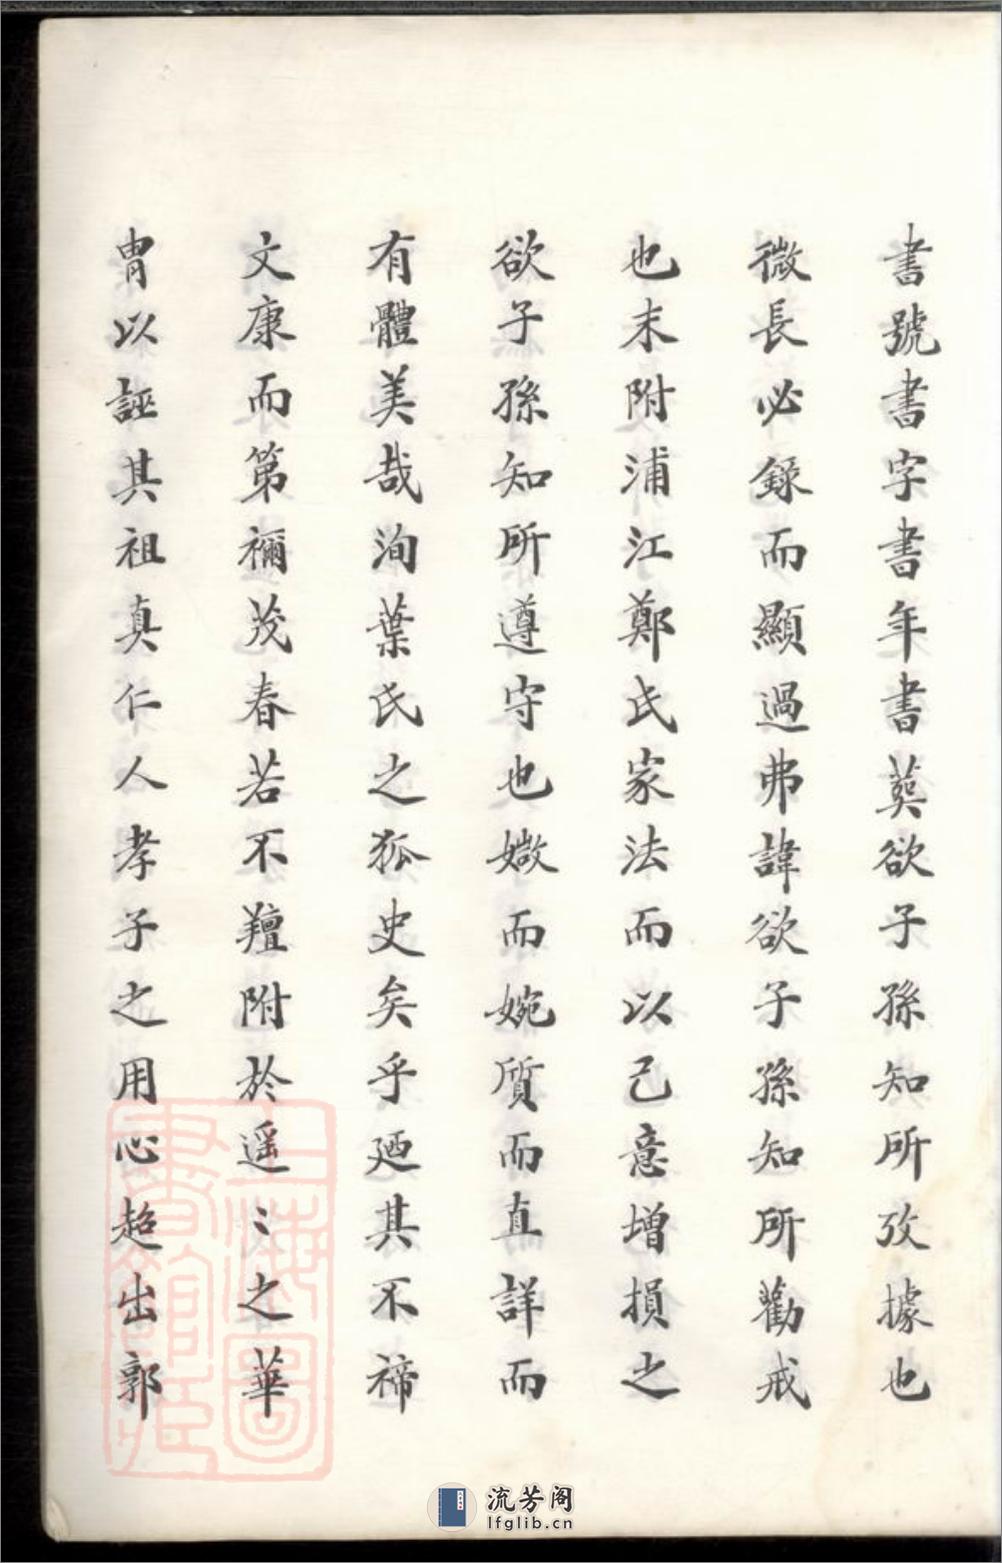 書號書字書年書葬欲子孫知所攷據也
微長必錄而顯過弗諱欲子孫知所勸戒
也末附浦江鄭氏家法而以己意增損之
欲子孫知所遵守也嫩而婉質而直詳而
有體美哉洵葉氏之狐史矣乎廼其不禘
文康而第禰茂春若不羶附於遥〻之華
冑以誣其祖真仁人孝子之用心超出郭
上海圖書館藏
流芳阁
lfglib.cn